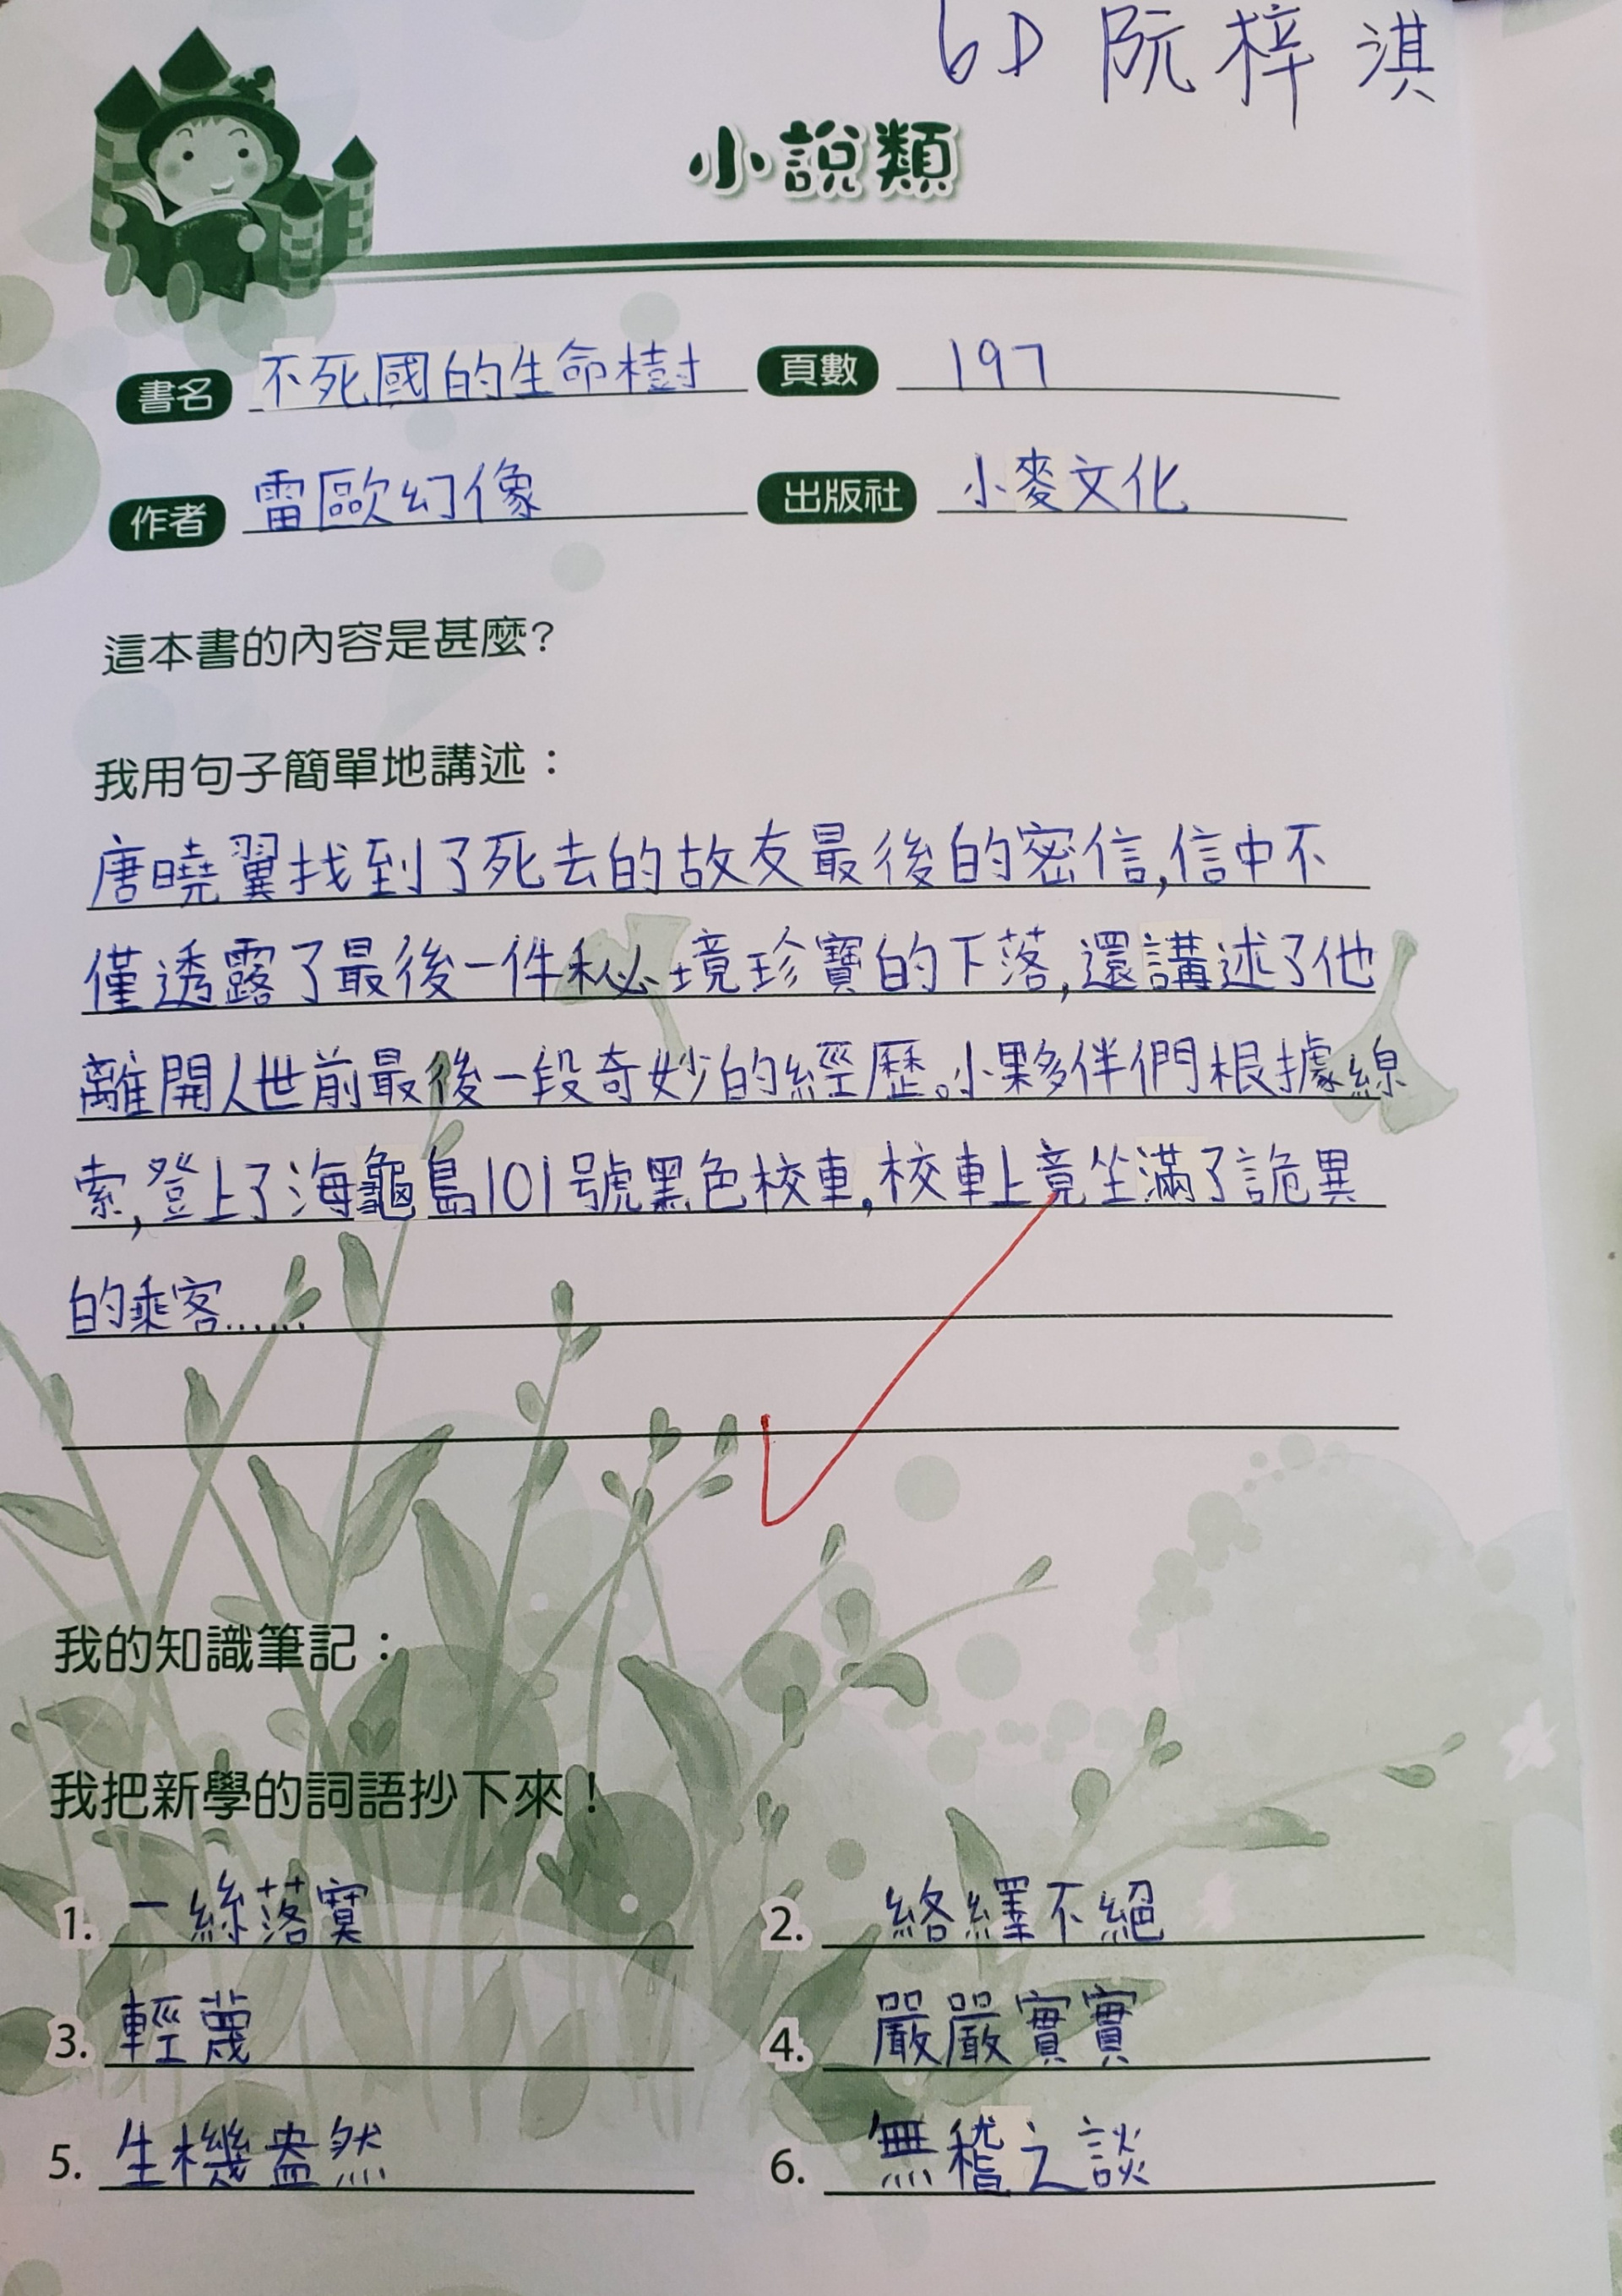 6D 阮梓淇
小說類
書名 不死國的生命樹 頁數 197
作者 雷歐幻像 出版社 小麥文化
這本書的內容是甚麼?
我用句子簡單地講述：
唐曉翼找到了死去的故友最後的密信,信中不
僅透露了最後一件秘境珍寶的下落,還講述了他
離開人世前最後一段奇妙的經歷。小夥伴們根據線
索,登上了海龜島101號黑色校車,校車上竟坐滿了詭異
的乘客......
我的知識筆記：
我把新學的詞語抄下來！
1. 一絲落寞 2. 絡繹不絕
3. 輕蔑 4. 嚴嚴實實
5. 生機盎然 6. 無稽之談